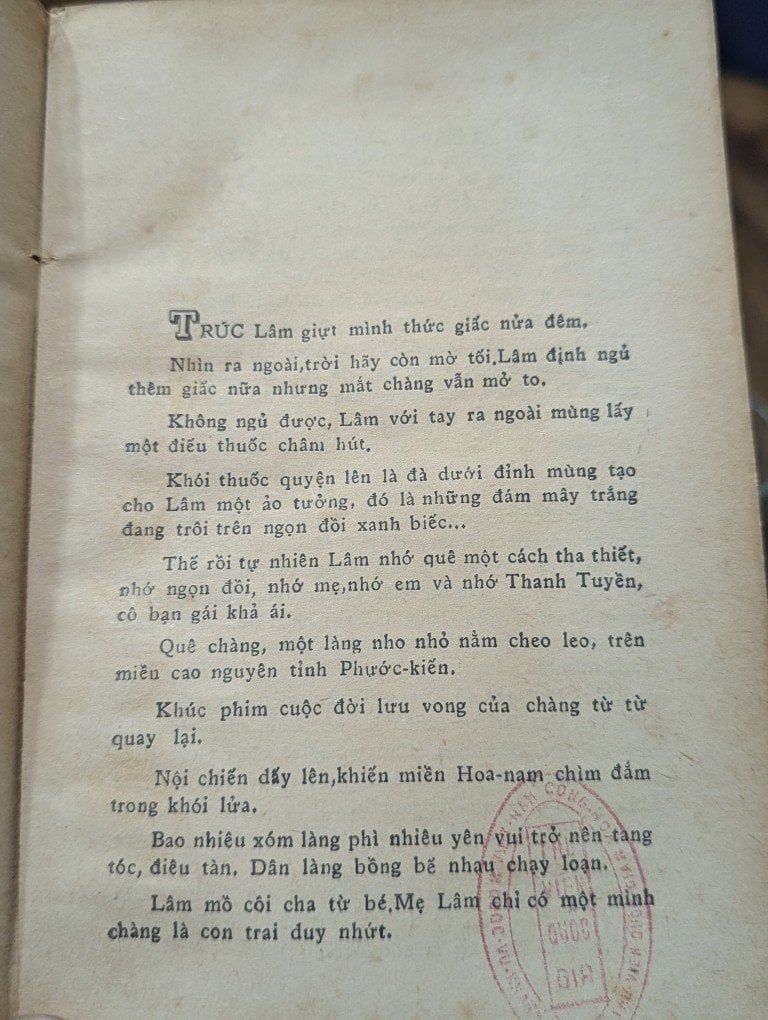 TRÚC Lâm giựt mình thức giấc nửa đêm.
Nhìn ra ngoài,trời hãy còn mờ tối.Lâm định ngủ
thêm giấc nữa nhưng mắt chàng vẫn mở to.
Không ngủ được, Lâm với tay ra ngoài mùng lấy
một điếu thuốc châm hút.
Khói thuốc quyện lên là đà dưới đỉnh mùng tạo
cho Lâm một ảo tưởng, đó là những đám mây trắng
đang trôi trên ngọn đồi xanh biếc...
Thế rồi tự nhiên Lâm nhớ quê một cách tha thiết,
nhớ ngọn đồi, nhớ mẹ,nhớ em và nhớ Thanh Tuyền,
cô bạn gái khả ái.
Quê chàng, một làng nho nhỏ nằm cheo leo, trên
miền cao nguyên tỉnh Phước-kiến.
Khúc phim cuộc đời lưu vong của chàng từ từ
quay lại.
Nội chiến dấy lên,khiến miền Hoa-nam chìm đắm
trong khói lửa.
Bao nhiêu xóm làng phì nhiêu yên vui trở nên tang
tóc, điêu tàn. Dân làng bồng bế nhau chạy loạn.
Lâm mồ côi cha từ bé.Mẹ Lâm chỉ có một mình
chàng là con trai duy nhứt.
VIỆN
QUỐC
GIA